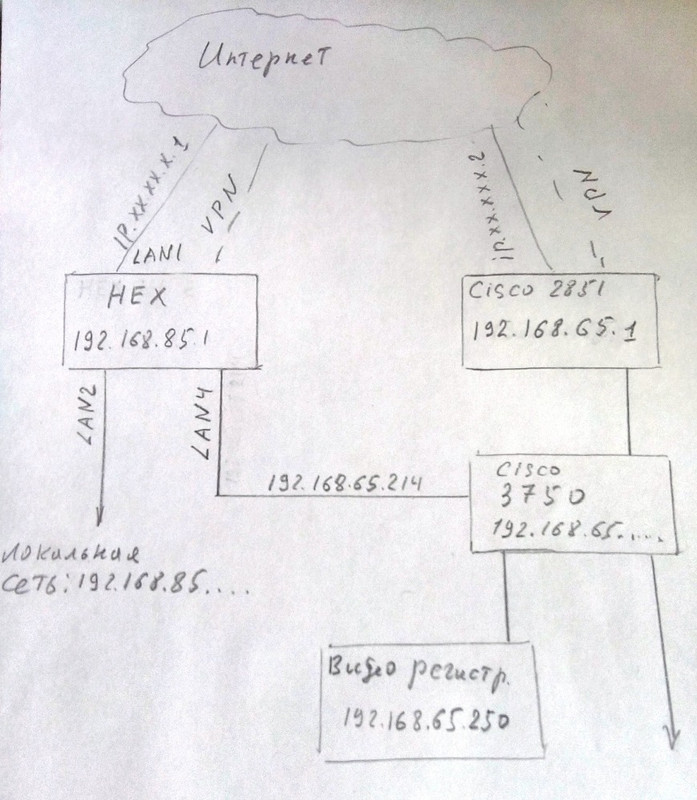 Интернет
IP.xx.xx.x.1
VPN
iP.xx.xxx.2
VPN
LAN1
HEX
192.168.85.1
Cisco 2851
192.168.65.1
LAN2
LAN4
192.168.65.214
Cisco
3750
192.168.65.....
Локальная
сеть:192.168.85....
Видео регистр.
192.168.65.250